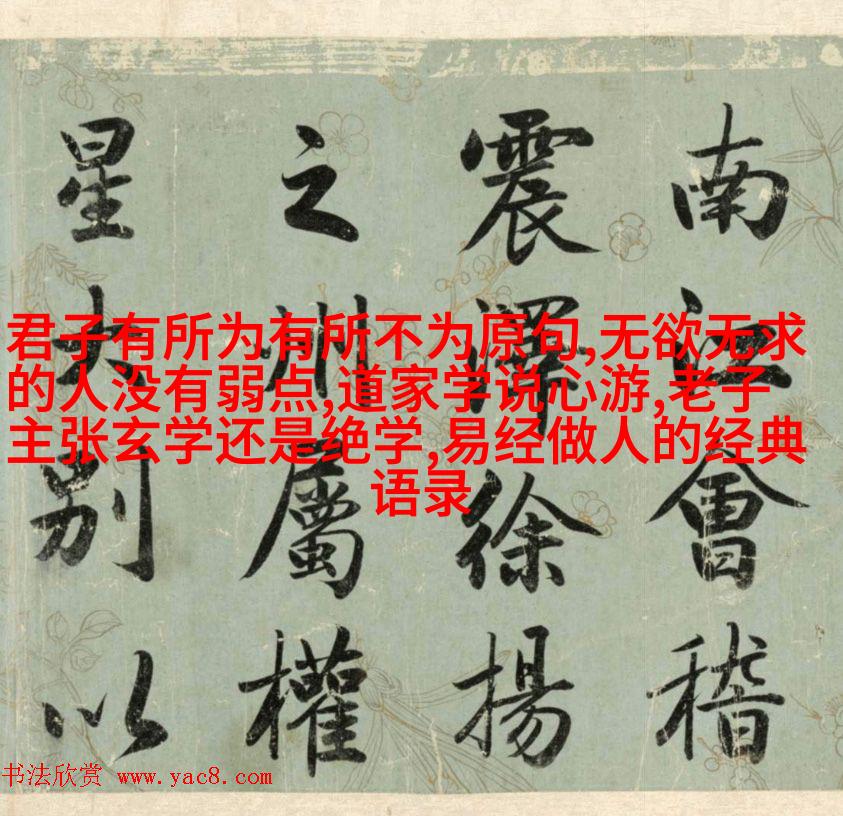 君子有所为有所不为原句,无欲无求
的人没有弱点,道家学说心游,老子
主张玄学还是绝学,易经做人的经典
语录
南江會稽
震澤徐揚
之州屬權
星大別以
书法欣赏 www.yac8.com